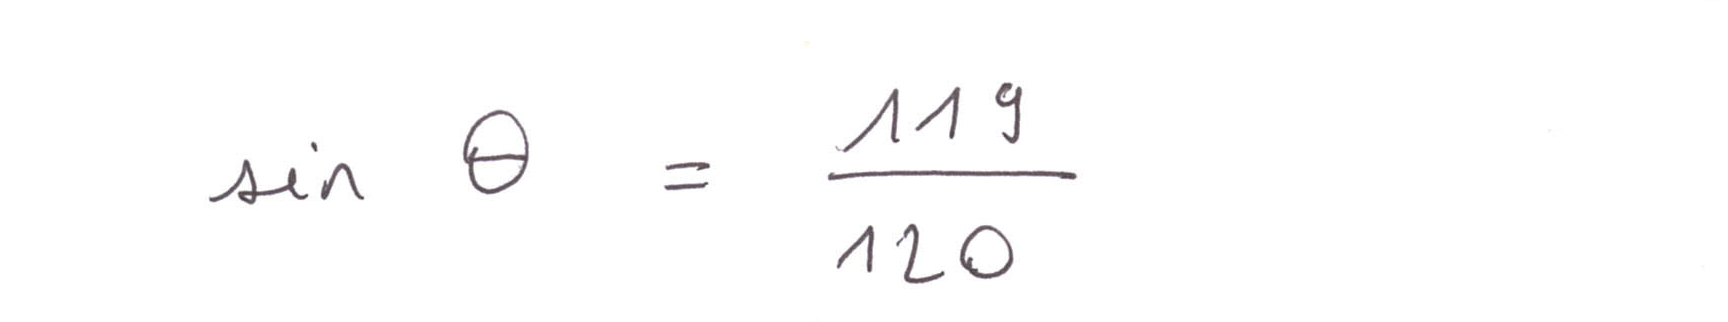 sin θ = 119/120